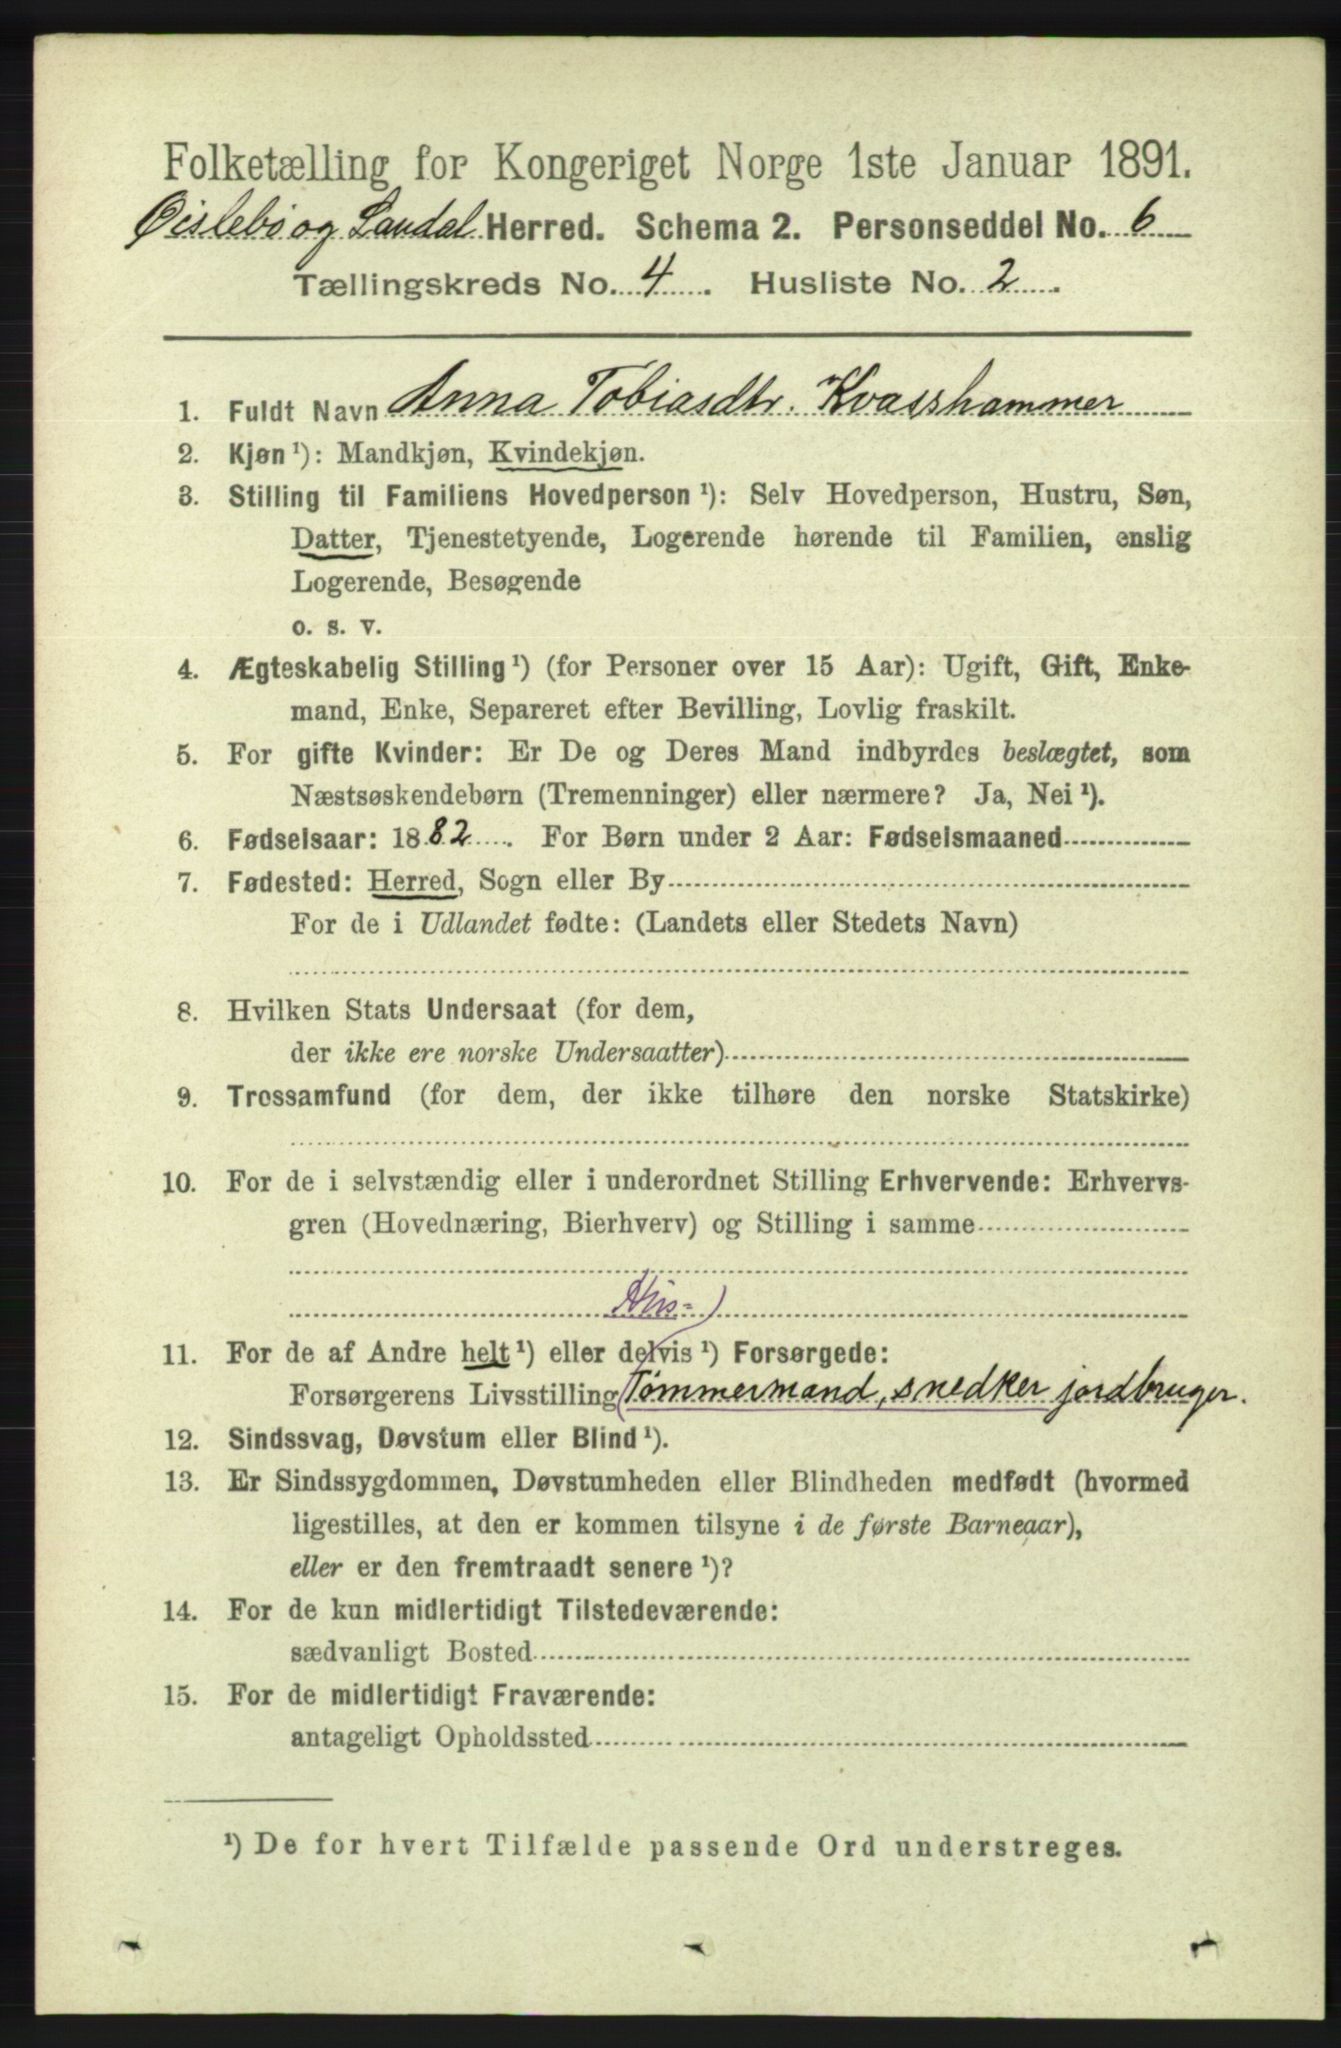 Folketælling for Kongeriget Norge 1ste Januar 1891.
Øislebø og Laudal Herred. Schema 2. Personseddel No. 6
Tællingskreds No. 4. Husliste No. 2.
1. Fuldt Navn Anna Tobiasdtr. Kvasshammer
2. Kjøn ¹): Mandkjøn, Kvindekjøn.
3. Stilling til Familiens Hovedperson ¹): Selv Hovedperson, Hustru, Søn,
Datter, Tjenestetyende, Logerende hørende til Familien, enslig
Logerende, Besøgende
o. s. v.
4. Ægteskabelig Stilling ¹) (for Personer over 15 Aar): Ugift, Gift, Enke-
mand, Enke, Separeret efter Bevilling, Lovlig fraskilt.
5. For gifte Kvinder: Er De og Deres Mand indbyrdes beslægtet, som
Næstsøskendebørn (Tremenninger) eller nærmere? Ja, Nei ¹).
6. Fødselsaar: 1882. For Børn under 2 Aar: Fødselsmaaned
7. Fødested: Herred, Sogn eller By
For de i Udlandet fødte: (Landets eller Stedets Navn)
8. Hvilken Stats Undersaat (for dem,
der ikke ere norske Undersaatter)
9. Trossamfund (for dem, der ikke tilhøre den norske Statskirke)
10. For de i selvstændig eller i underordnet Stilling Erhvervende: Erhvervs-
gren (Hovednæring, Bierhverv) og Stilling i samme
Hus-
11. For de af Andre helt ¹) eller delvis ¹) Forsørgede:
Forsørgerens Livsstilling Tømmermand, snedker jordbruger.
12. Sindssvag, Døvstum eller Blind ¹).
13. Er Sindssygdommen, Døvstumheden eller Blindheden medfødt (hvormed
ligestilles, at den er kommen tilsyne i de første Barneaar),
eller er den fremtraadt senere ¹)?
14. For de kun midlertidigt Tilstedeværende:
sædvanligt Bosted
15. For de midlertidigt Fraværende:
antageligt Opholdssted
¹) De for hvert Tilfælde passende Ord understreges.